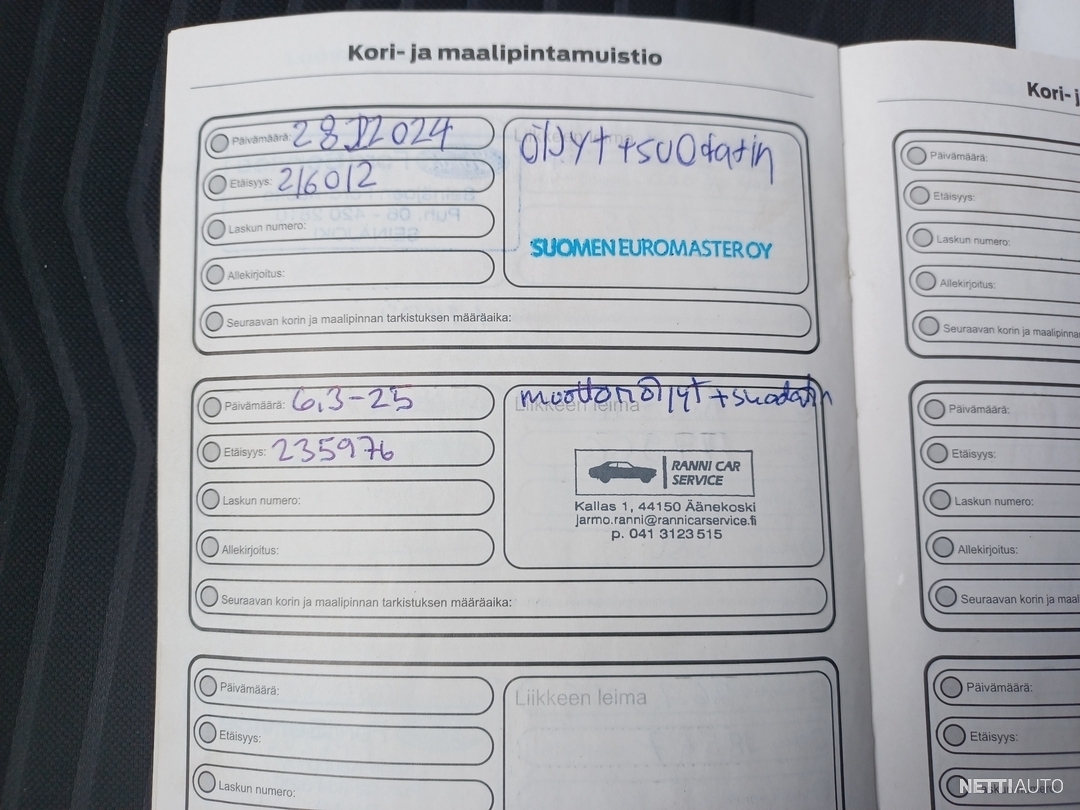 Kori- ja maalipintamuistio
Päivämäärä: 28 2024
Etäisyys: 216012
Laskun numero:
Allekirjoitus:
Seuraavan korin ja maalipinnan tarkistuksen määräaika:
öljyt + suodatin
SUOMEN EUROMASTER OY
Päivämäärä: 6,3-25
Etäisyys: 235976
Laskun numero:
Allekirjoitus:
Seuraavan korin ja maalipinnan tarkistuksen määräaika:
moottoriöljyt + suodatin
Liikkeen leima
RANNI CAR
SERVICE
Kallas 1, 44150 Äänekoski
jarmo.ranni@rannicarservice.fi
p. 041 3123 515
Päivämäärä:
Etäisyys:
Laskun numero:
Liikkeen leima
Kori- j
Päivämäärä:
Etäisyys:
Laskun numero:
Allekirjoitus:
Seuraavan korin ja maalipinnan
Päivämäärä:
Etäisyys:
Laskun numero:
Allekirjoitus:
Seuraavan korin ja maal
Päivämäärä:
Etäisyys:
NETTIAUTO